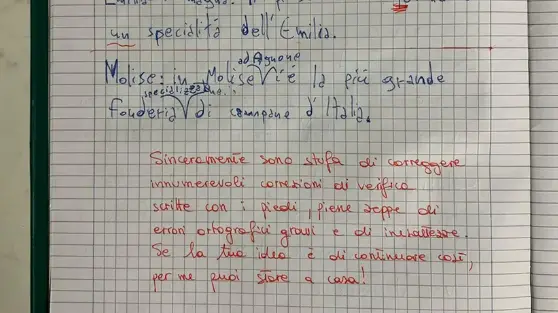 un specialità dell'Emilia.
ad Agnone
Molise: in Molise c'è la più grande
specializzata
fonderia di campane d'Italia.
Sinceramente sono stufa di correggere
innumerevoli correzioni di verifica
scritte con i piedi, piene zeppe di
errori ortografici gravi e di inesattezze.
Se la tua idea è di continuare così,
per me puoi stare a casa!